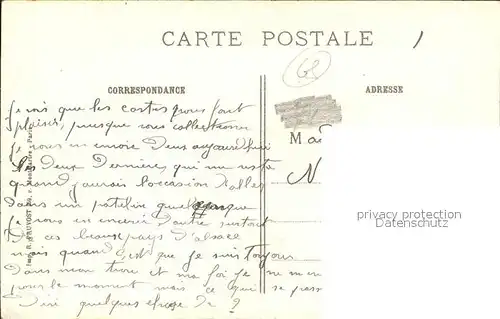 CARTE POSTALE
68
CORRESPONDANCE
ADRESSE
Je vois que les cartes vous font
plaisir, puisque vous collectionnez
je vous en envoie deux aujourd'hui
les deux dernières, qui me reste
quand j'aurais l'occasion d'aller
dans un patelin quelconque
je vous en enverrai d'autre surtout
de ces beaux pays d'alsace
mais quand est que je suis toujours
dans mon trou et ma foi je ne m'en
pour le moment mais ce qui se pass
quelques chose de
Ma
N
privacy protection
Datenschutz